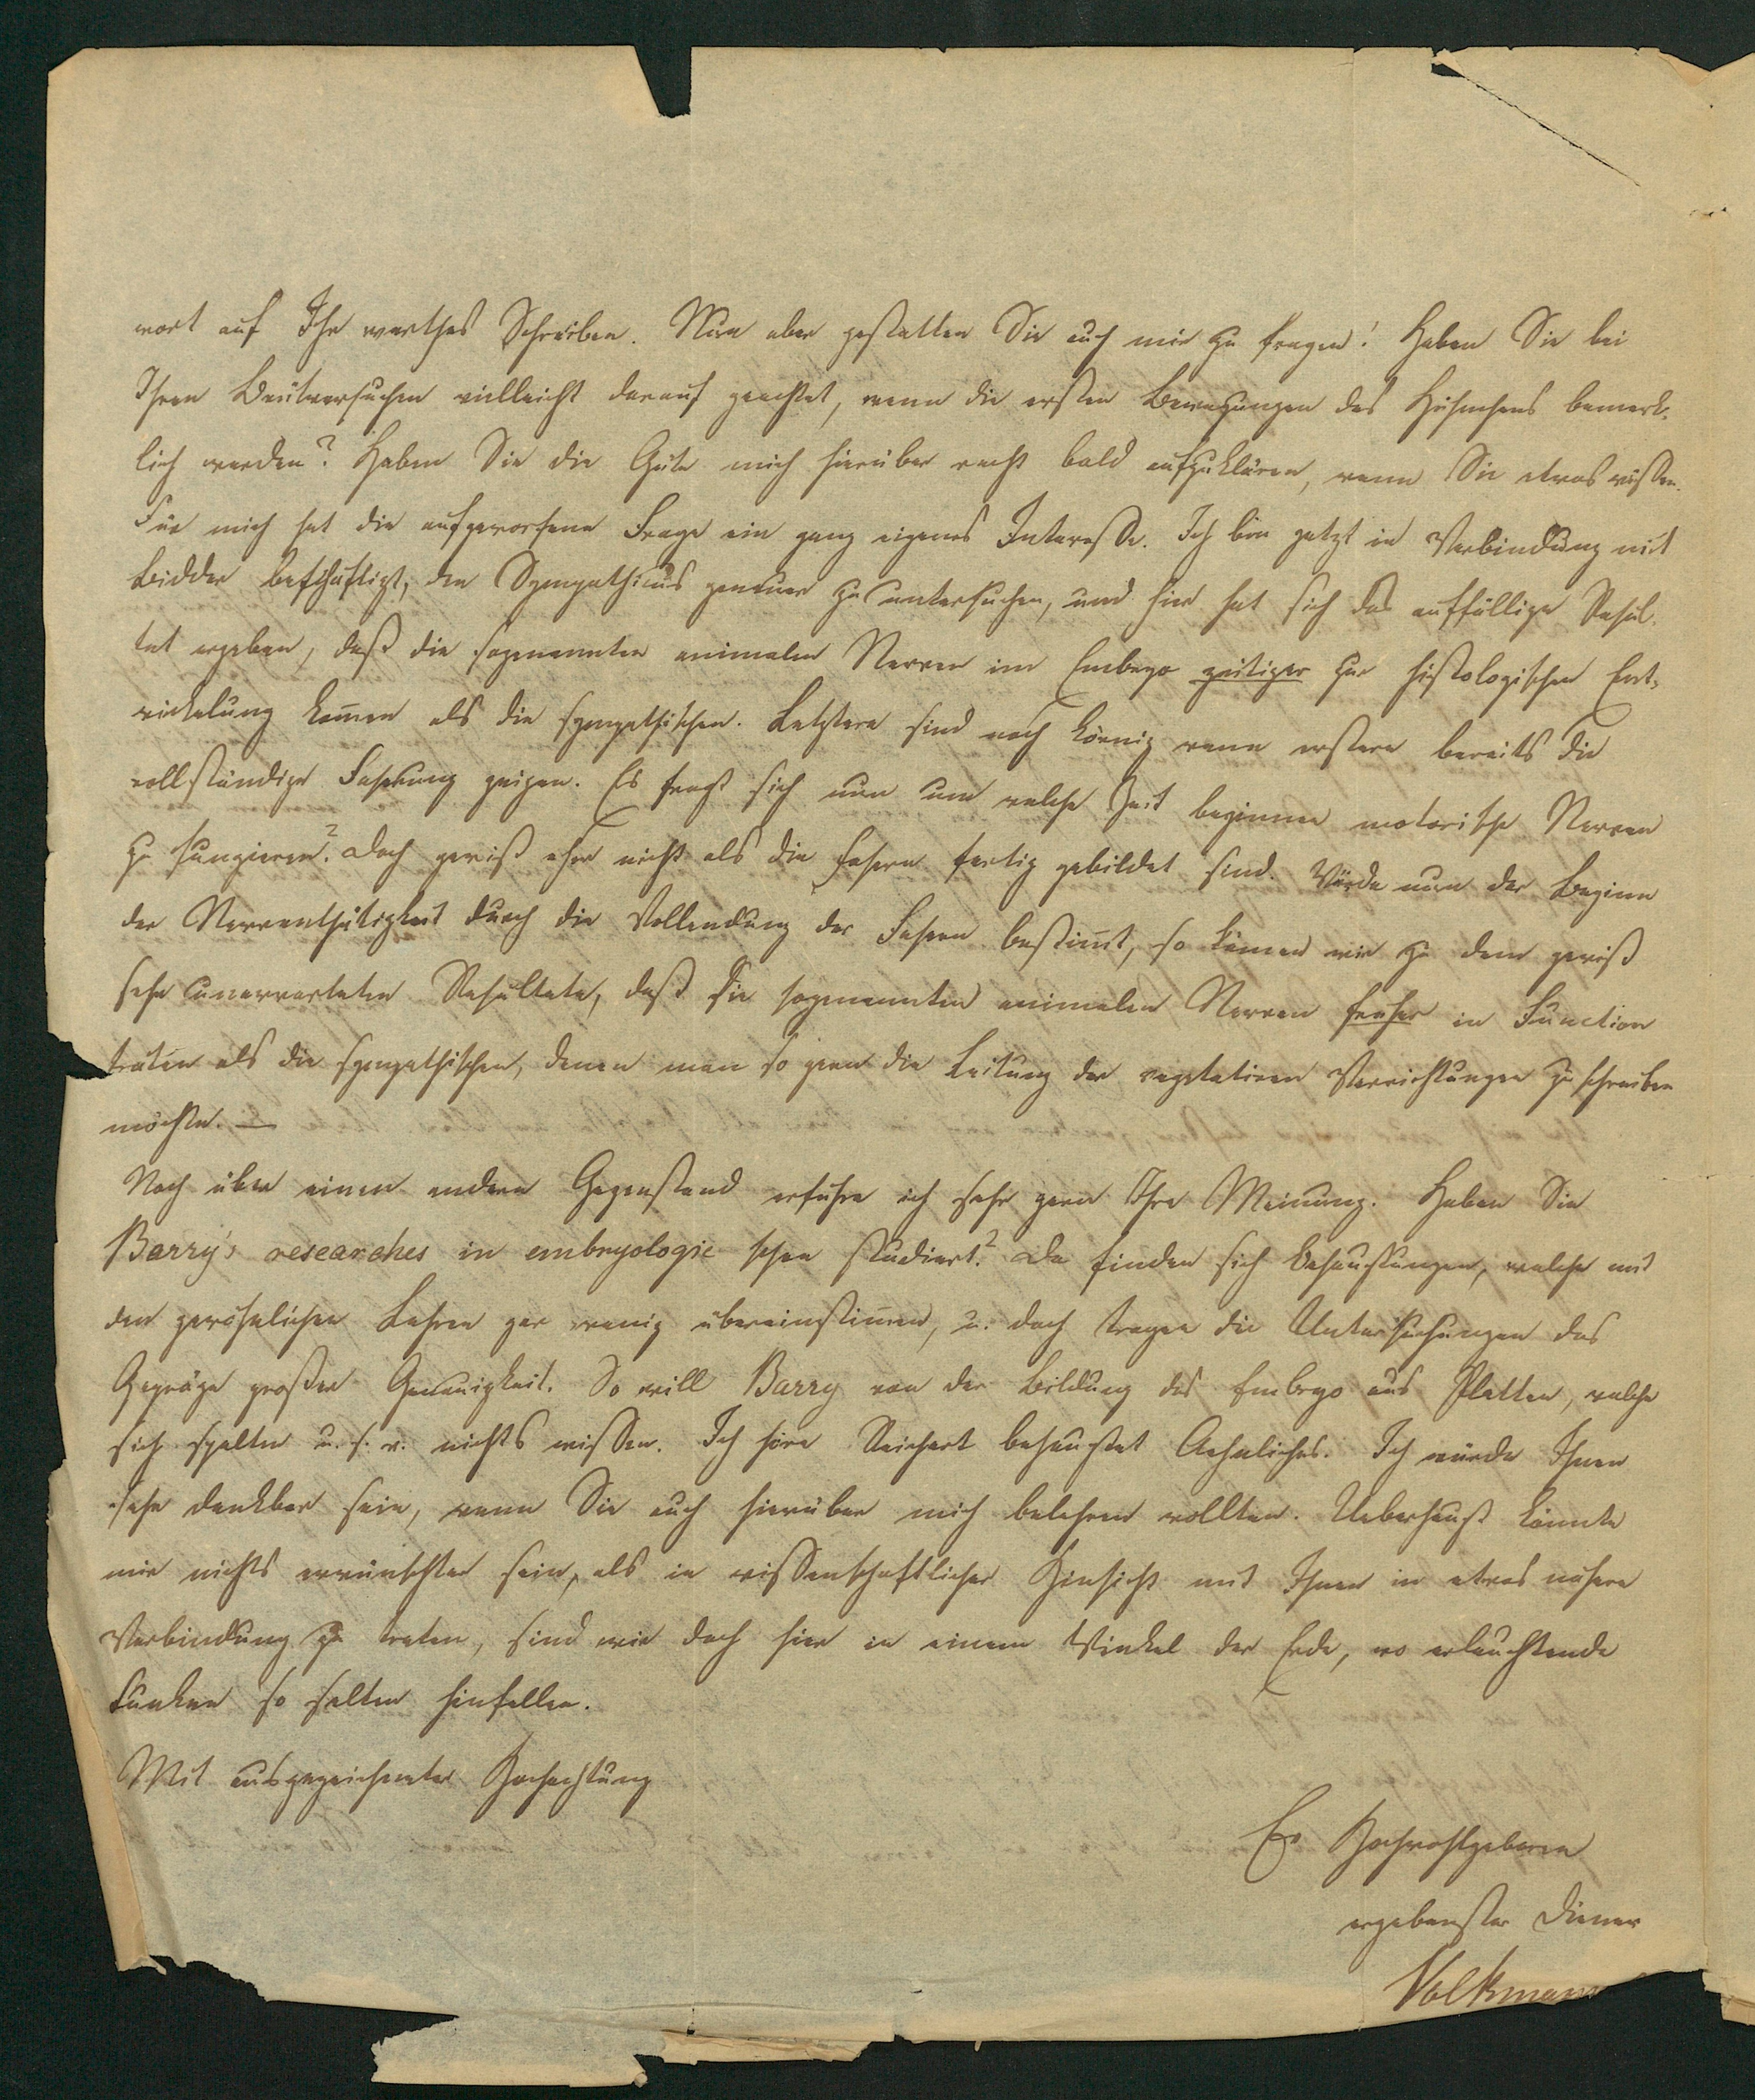 wort auf Ihr werthes Schreiben. Nun aber gestatten Sie auch mir zu fragen! Haben Sie bei
Ihren Brütversuchen vielleicht darauf geachtet, wenn die ersten Bewegungen des Hühnchens bemerk-
lich werden? Haben Sie die Güte mich hierüber recht bald aufzuklären, wenn Sie etwas wissen.
Für mich hat die aufgeworfene Frage ein ganz eigenes Interesse. Ich bin jetzt in Verbindung mit
Bidder beschäftigt, den Sympathicus genauer zu untersuchen, und hier hat sich das auffällige Resul-
tat ergeben, daß die sogenannten animalen Nerven im Embryo zeitiger zur histologischen Ent-
wickelung kom̄en als die sympathischen. Letztere sind noch körnig wenn erstere bereits die
vollständige Faserung zeigen. Es fragt sich nun um welche Zeit beginnen motorische Nerven
zu fungieren? Doch gewiß eher nicht als die Fasern fertig gebildet sind. Würde nun der Beginn
der Nerventhätigkeit durch die Vollendung der Fasern bestim̄t, so kämen wir zu dem gewiß
sehr unerwarteten Resultate, daß die sogenannten animalen Nerven früher in Function
träten als die sympathischen, denen man so gern die Leitung der vegetativen Verrichtungen zuschreiben
möchte. —
Noch über einen andern Gegenstand erführe ich sehr gern Ihre Meinung. Haben Sie
Barry's researches in embryologie schon studiert? Da finden sich Behauptungen, welche mit
den gewöhnlichen Lehren gar wenig übereinstim̄en, u. doch tragen die Untersuchungen das
Gepräge großer Genauigkeit. So will Barry von der Bildung des Embryo aus Platten, welche
sich spalten u. s. w. nichts wissen. Ich höre Reichert behauptet Aehnliches. Ich würde Ihnen
sehr dankbar sein, wenn Sie auch hierüber mich belehren wollten. Ueberhaupt könnte
mir nichts erwünschter sein, als in wissenschaftlicher Hinsicht mit Ihnen in etwas nähere
Verbindung zu treten, sind wir doch hier in einem Winkel der Erde, wo erleuchtende
Funken so selten hinfallen.
Mit ausgezeichneter Hochachtung
Ew Hochwohlgeboren
ergebenster Diener
Volkmann